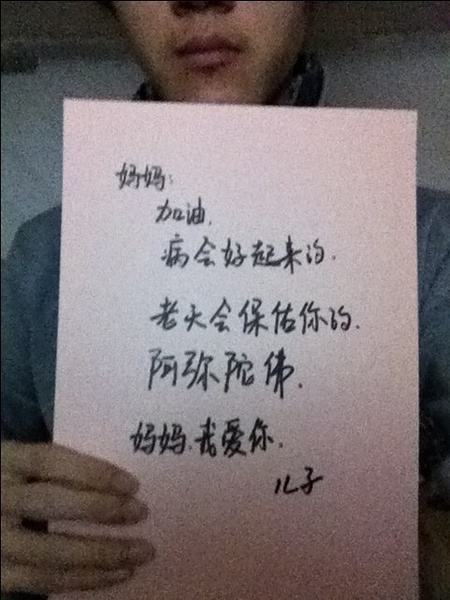 妈妈:
加油.
病会好起来的.
老天会保估你的.
阿弥陀伟.
妈妈.我爱你.
儿子